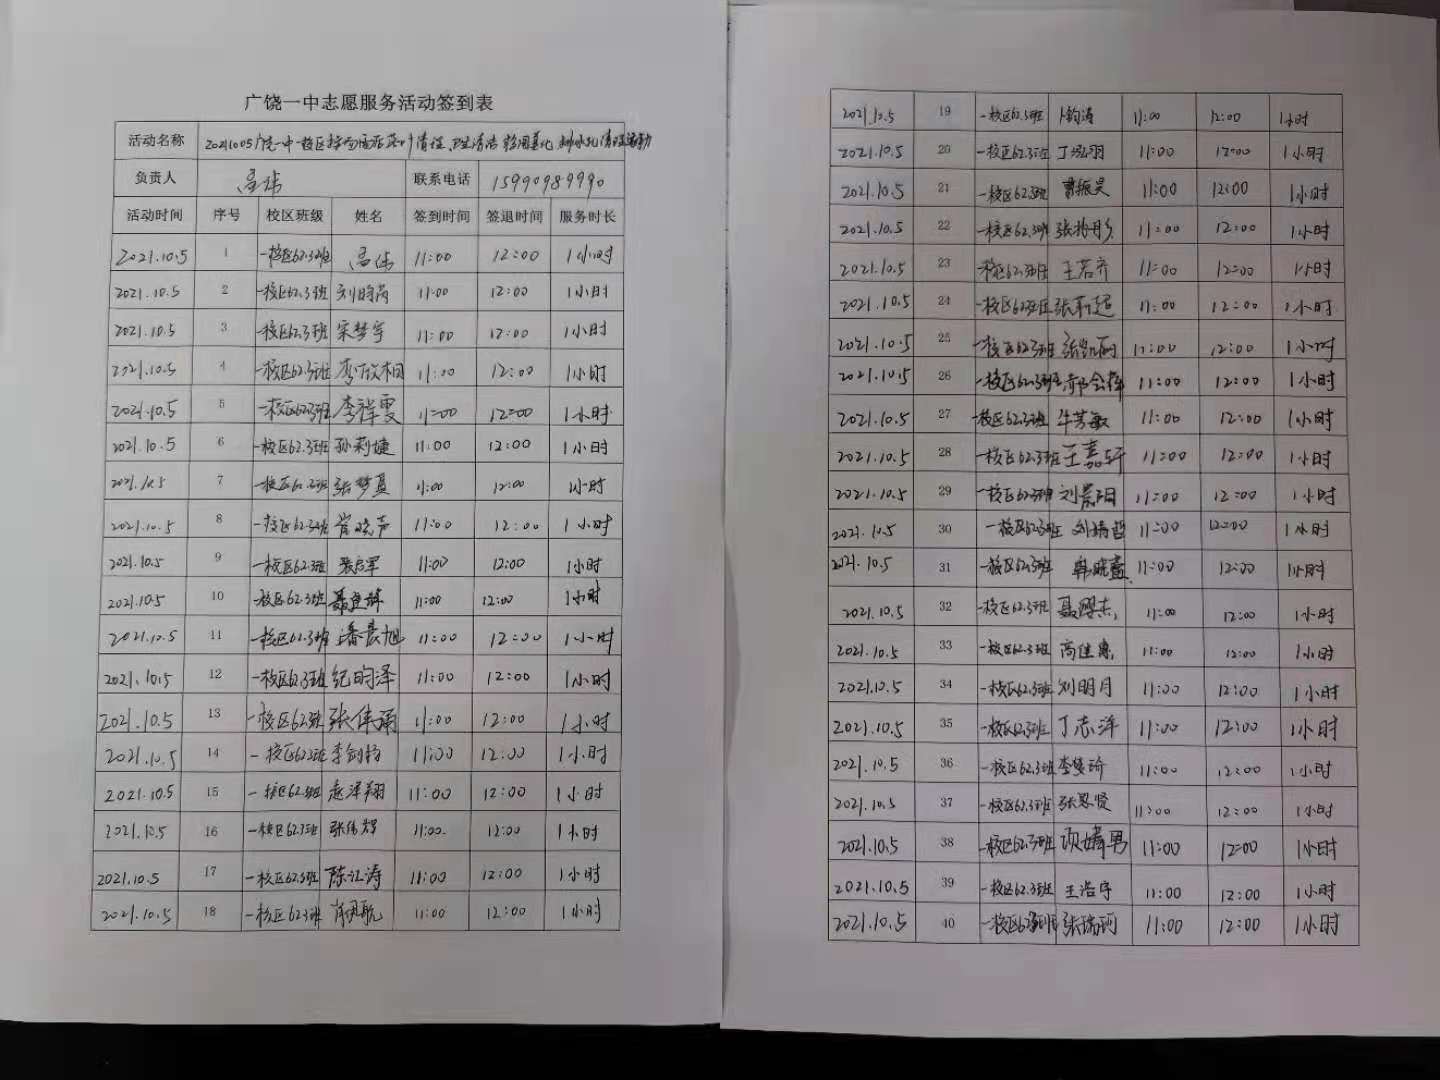 广饶一中志愿服务活动签到表
活动名称 20211005广饶一中一校区 清洁 美化
负责人 吕伟 联系电话 15990989990
活动时间 序号 校区班级 姓名 签到时间 签退时间 服务时长
2021.10.5 1 一校区62.3班 吕伟 11:00 12:00 1小时
2021.10.5 2 一校区62.3班 11:00 12:00 1小时
2021.10.5 3 一校区62.3班 宋梦宇 11:00 12:00 1小时
2021.10.5 4 一校区62.3班 李欣桐 11:00 12:00 1小时
2021.10.5 5 一校区62.3班 李祥雯 11:00 12:00 1小时
2021.10.5 6 一校区62.3班 孙莉婕 11:00 12:00 1小时
2021.10.5 7 一校区62.3班 张梦夏 11:00 12:00 1小时
2021.10.5 8 一校区62.3班 11:00 12:00 1小时
2021.10.5 9 一校区62.3班 11:00 12:00 1小时
2021.10.5 10 一校区62.3班 11:00 12:00 1小时
2021.10.5 11 一校区62.3班 潘晨旭 11:00 12:00 1小时
2021.10.5 12 一校区62.3班 纪昀泽 11:00 12:00 1小时
2021.10.5 13 一校区62.3班 11:00 12:00 1小时
2021.10.5 14 一校区62.3班 李剑钧 11:00 12:00 1小时
2021.10.5 15 一校区62.3班 赵泽翔 11:00 12:00 1小时
2021.10.5 16 一校区62.3班 张伟智 11:00 12:00 1小时
2021.10.5 17 一校区62.3班 陈江涛 11:00 12:00 1小时
2021.10.5 18 一校区62.3班 11:00 12:00 1小时
2021.10.5 19 一校区62.3班 卜钧涛 11:00 12:00 1小时
2021.10.5 20 一校区62.3班 丁泓羽 11:00 12:00 1小时
2021.10.5 21 一校区62.3班 曹振昊 11:00 12:00 1小时
2021.10.5 22 一校区62.3班 11:00 12:00 1小时
2021.10.5 23 一校区62.3班 王若齐 11:00 12:00 1小时
2021.10.5 24 一校区62.3班 张新超 11:00 12:00 1小时
2021.10.5 25 一校区62.3班 张凯丽 11:00 12:00 1小时
2021.10.5 26 一校区62.3班 11:00 12:00 1小时
2021.10.5 27 一校区62.3班 牛芳敏 11:00 12:00 1小时
2021.10.5 28 一校区62.3班 王嘉轩 11:00 12:00 1小时
2021.10.5 29 一校区62.3班 刘景阳 11:00 12:00 1小时
2021.10.5 30 一校区62.3班 11:00 12:00 1小时
2021.10.5 31 一校区62.3班 韩晓萱 11:00 12:00 1小时
2021.10.5 32 一校区62.3班 11:00 12:00 1小时
2021.10.5 33 一校区62.3班 高佳惠 11:00 12:00 1小时
2021.10.5 34 一校区62.3班 刘明月 11:00 12:00 1小时
2021.10.5 35 一校区62.3班 丁志洋 11:00 12:00 1小时
2021.10.5 36 一校区62.3班 11:00 12:00 1小时
2021.10.5 37 一校区62.3班 张恩贤 11:00 12:00 1小时
2021.10.5 38 一校区62.3班 11:00 12:00 1小时
2021.10.5 39 一校区62.3班 王浩宇 11:00 12:00 1小时
2021.10.5 40 一校区62.3班 张瑞珂 11:00 12:00 1小时